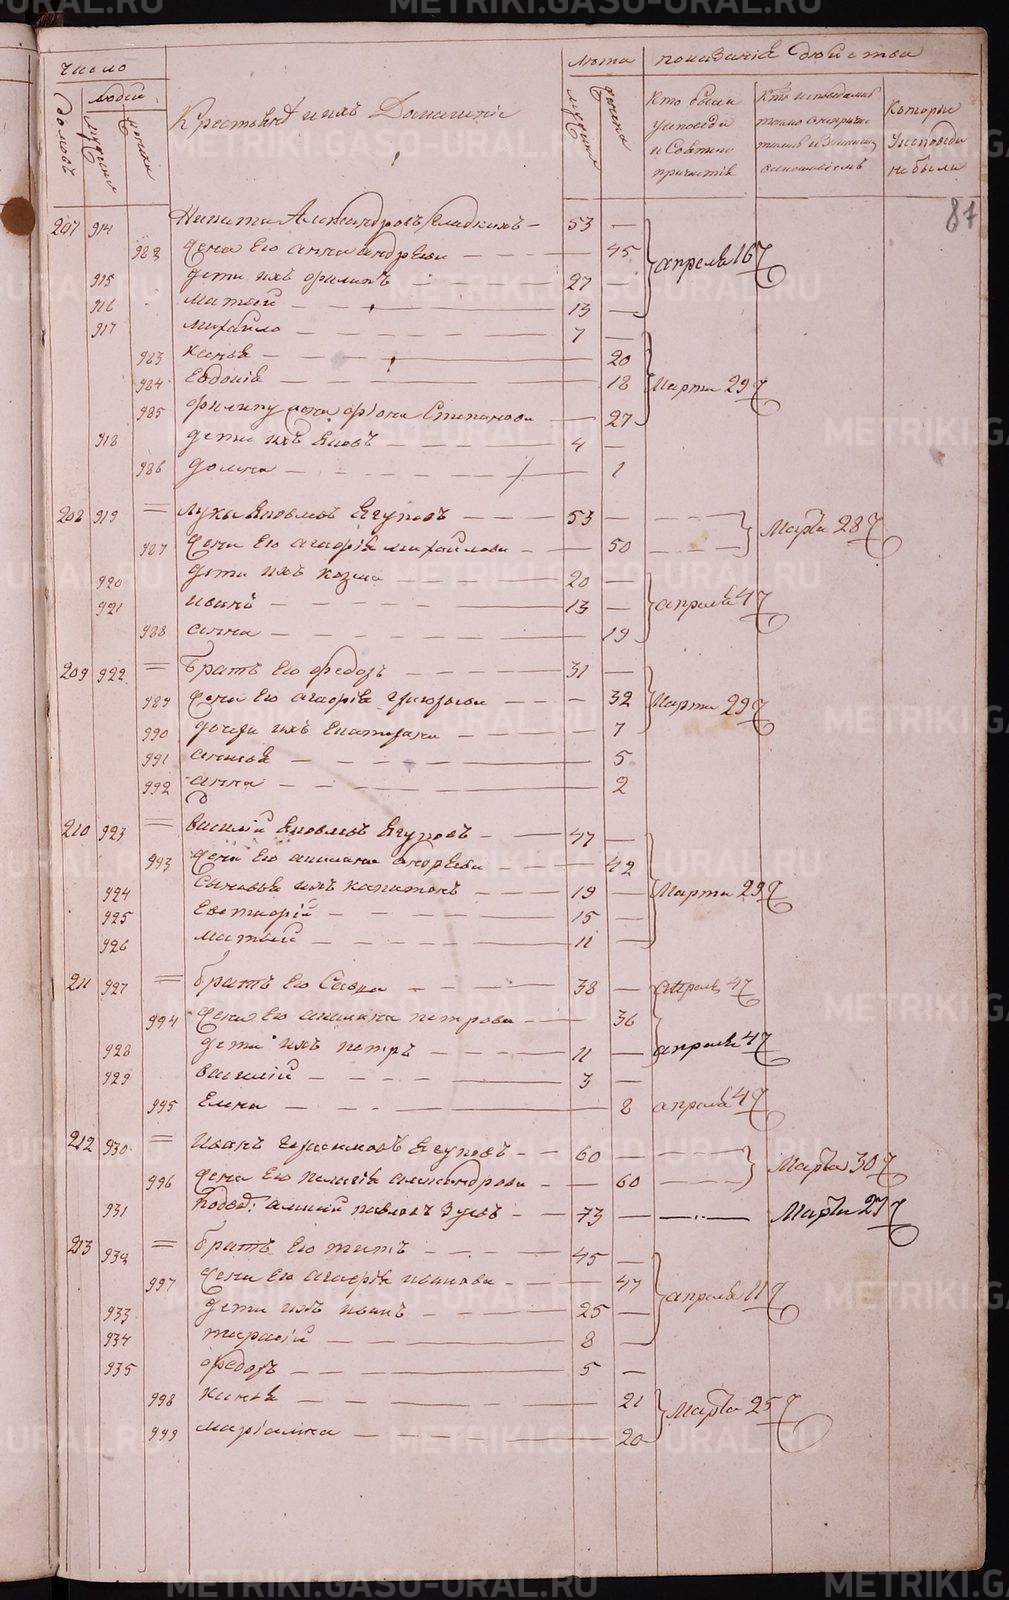 число
людей
домовъ
мужска
женска
Крестьяне и ихъ Домашнiе
лѣта
мужска
женска
показанiе дѣйства
Кто были у исповеди и Святаго причастiя
Которые у исповеди не были
87
207 914 Никита Александровъ Гладкихъ — 53 —
982 Жена Его Анна Андреева — 45 апреля 16
915 дети ихъ Филипъ — 27 —
916 Матвей — 13 —
917 Михайло — 7 —
983 Ксенья — 20
984 Евдокiя — 18 Марта 29
985 Филипу жена Степанова — 27
918 дети ихъ Яковъ — 4 —
986 — 1
208 919 = Лука Яковлевъ Ягуповъ — 53 — Марта 28
987 Жена Его Агафiя Михайлова — 50
920 дети ихъ Козма — 20 —
921 Иванъ — 13 — апреля 4
988 Анна — 19
209 922 = Братъ Его Федоръ — 31 —
989 Жена Его Агафiя Григорьева — 32 Марта 29
990 дочери ихъ Екатерина — 7
991 Анисья — 5
992 Анна — 2
210 923 = Василiй Яковлевъ Ягуповъ — 47 —
993 Жена Его Андреева — 42
924 Сыновья ихъ Капитонъ — 19 — Марта 29
925 — 15 —
926 Матвей — 11 —
211 927 = братъ Его Савва — 38 — апреля 4
994 Жена Его Акилина Петрова — 36
928 дети ихъ Петръ — 11 — апреля 4
929 Василiй — 3 —
995 Елена — 8 апреля 4
212 930 = Иванъ Герасимовъ Ягуповъ — 60 — Марта 30
996 Жена Его Пелагiя Александрова — 60
931 Павловъ Зуевъ — 73 — Марта 27
213 932 = братъ Его Титъ — 45 —
997 Жена Его Агафiя Иванова — 47
933 дети ихъ Иванъ — 25 — апреля 11
934 Тарасiй — 8 —
935 Федоръ — 5 —
998 Ксенья — 21 Марта 25
999 Марiамна — 20
METRIKI.GASO-URAL.RU